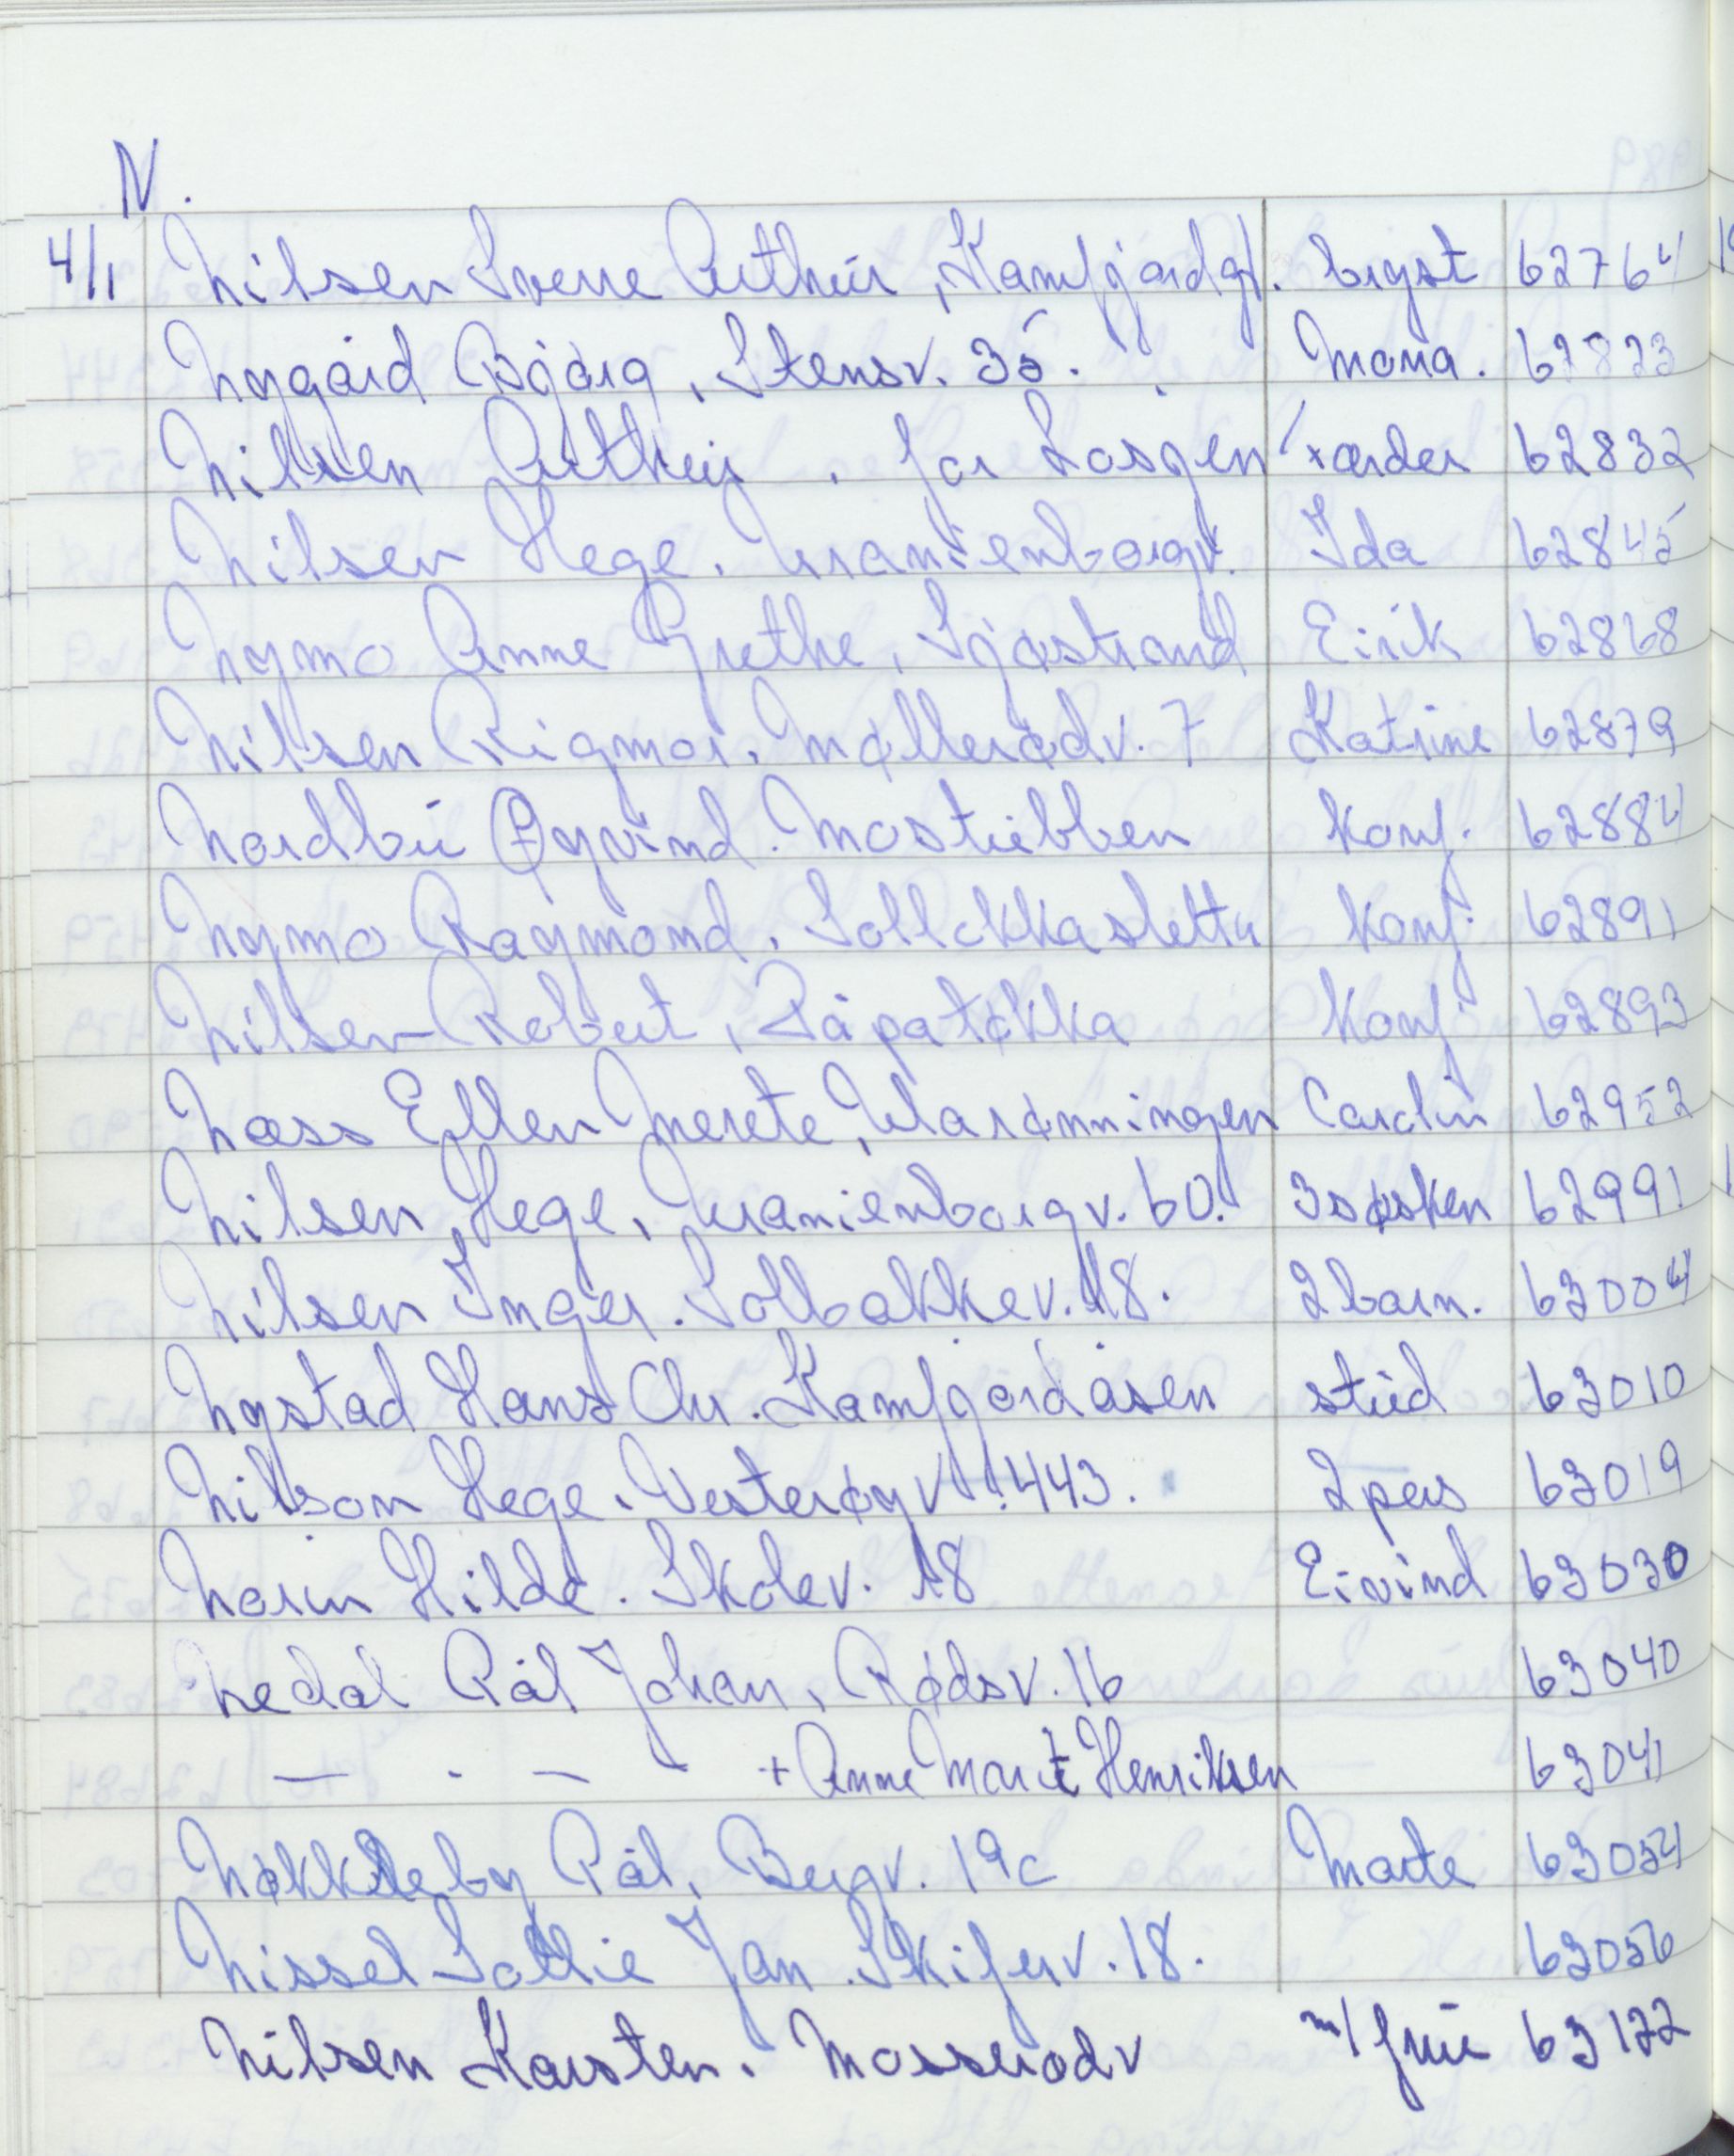 N.
4/1 Nilsen Sverre Arthur, Kamfjordgt. bryst 62764
Nygård Bjørg, Stensv. 35. Mona. 62823
Nilsen Arthur. for Losgen 62832
Nilsen Hege. Uranienborgv. Ida 62845
Nymo Anne Grethe, Sjøstrand Eirik 62868
Nilsen Rigmor. Møllerødv. 7 Katrine 62879
Nordbu Øyvind. Mostubben Konf. 62884
Nymo Raymond. Solløkkasletta Konf. 62891
Nilsen Robert, Råpatøkka Konf 62893
Næss Ellen Merete, Ularønningen Carolin 62952
Nilsen Hege, Uranienborgv. 60. 3 søsken 62991
Nilsen Inger. Solbakkev. 18. 2 barn. 63004
Nystad Hans Chr. Kamfjordåsen stud 63010
Nilson Hege. Vesterøyv. 443. 2 pers 63019
Norin Hilde. Skolev. 18 Eivind 63030
Nedal Pål Johan, Rødsv. 16 63040
— - — - + Anne Marit Henriksen 63041
Nøkkleby Pål, Bergv. 19c Marte 63054
Nissel Sollie Jan. Skiferv. 18. 63056
Nilsen Karsten. Mosserødv m/fru 63122